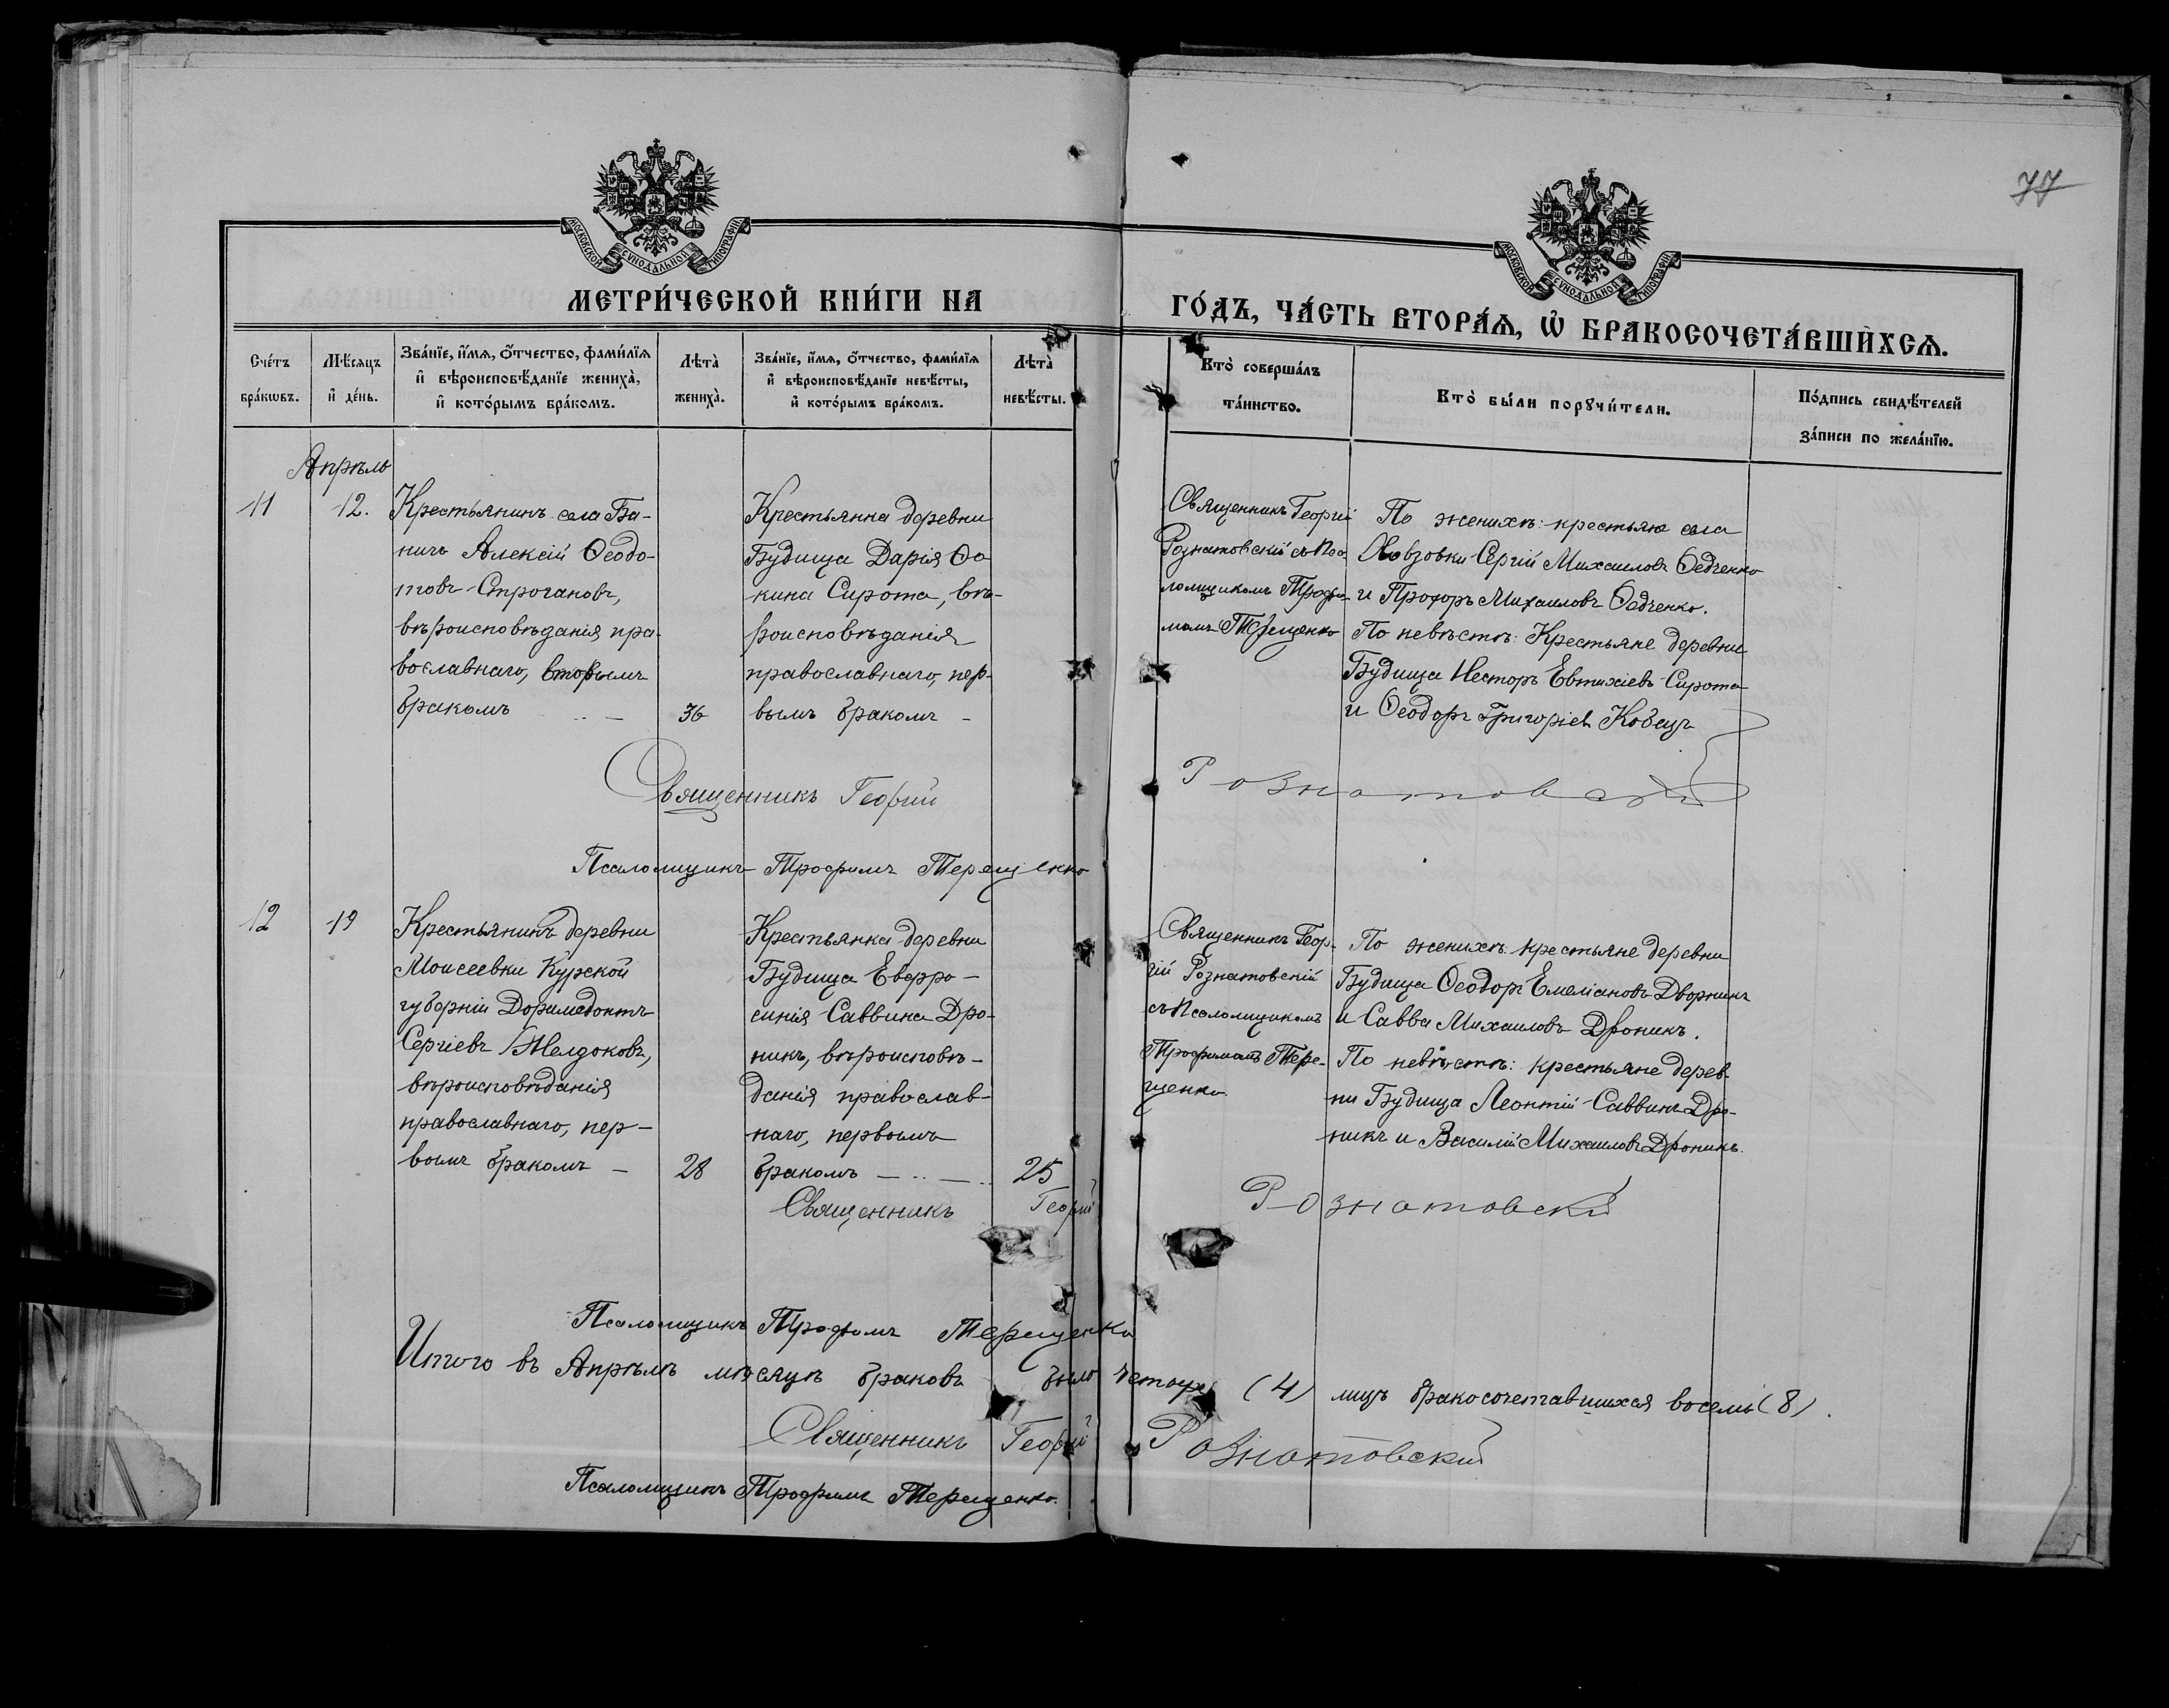 77
МОСКОВСКОЙ СѴНОДАЛЬНОЙ ТИПОГРАФІИ
МОСКОВСКОЙ СѴНОДАЛЬНОЙ ТИПОГРАФІИ
МЕТРИ́ЧЕСКОЙ КНИ́ГИ НА ГО́ДЪ, ЧА́СТЬ ВТОРА́Ѧ, Ѽ БРАКОСОЧЕТА́ВШИХСѦ.
Сче́тъ бра́кѡвъ.
Мѣ́сѧцъ и҆ де́нь.
Зва́нїе, и҆́мѧ, ѻ҆́тчество, фами́лїѧ
и҆ вѣроисповѣ́данїе жениха̀,
и҆ кото́рымъ бра́комъ.
Лѣта̀ жениха̀.
Зва́нїе, и҆́мѧ, ѻ҆́тчество, фами́лїѧ
и҆ вѣроисповѣ́данїе невѣ́сты,
и҆ кото́рымъ бра́комъ.
Лѣта̀ невѣ́сты.
Кто̀ соверша́лъ
та́инство.
Кто̀ бы́ли порꙋчи́тели.
По́дпись свидѣ́телей
за́писи по жела́нїю.
Апрѣль
11
12.
Крестьянинъ села Ба-
ничь Алексій Ѳеодо-
товъ Строгановъ,
вѣроисповѣданія пра-
вославнаго, вторымъ
бракомъ —
36
Крестьянка деревни
Будища Дарія Ѳо
кина Сирота, вѣ-
роисповѣданія
православнаго, пер-
вымъ бракомъ -
Священникъ Георгій
Рознатовскій съ Пса-
ломщикомъ Трофи-
момъ Терещенко
По женихѣ: крестьяне села
Сергій Михаиловъ Ѳедченко
и Прохоръ Михаиловъ Ѳедченко.
По невѣстѣ: Крестьяне деревни
Будища Несторъ Евтихіевъ Сирота
и Ѳеодоръ Григоріевъ Кобецъ
Священникъ Георгій Рознатовскій
Псаломщикъ Трофимъ Терещенко
12
19
Крестьянинъ деревни
Моисеевки Курской
губерніи Доримедонтъ
Сергіевъ
вѣроисповѣданія
православнаго, пер-
вымъ бракомъ —
28
Крестьянка деревни
Будища Евфро-
синія Саввина Дро-
никъ, вѣроисповѣ-
данія православ-
наго, первымъ
бракомъ —
25
Священникъ Геор-
гій Рознатовскій
съ Псаломщикомъ
Трофимомъ Тере-
щенко
По женихѣ: крестьяне деревни
Будища Ѳеодоръ Емеліановъ Дворникъ
и Савва Михаиловъ Дроникъ.
По невѣстѣ: крестьяне дерев-
ни Будища Леонтій Саввинъ Дро-
никъ и Василій Михаиловъ Дроникъ.
Священникъ Георгій Рознатовскій
Псаломщикъ Трофимъ Терещенко
Итого въ Апрѣлѣ мѣсяцѣ браковъ было четыре (4) лицъ бракосочетавшихся восемь (8).
Священникъ Георгій Рознатовскій
Псаломщикъ Трофимъ Терещенко.